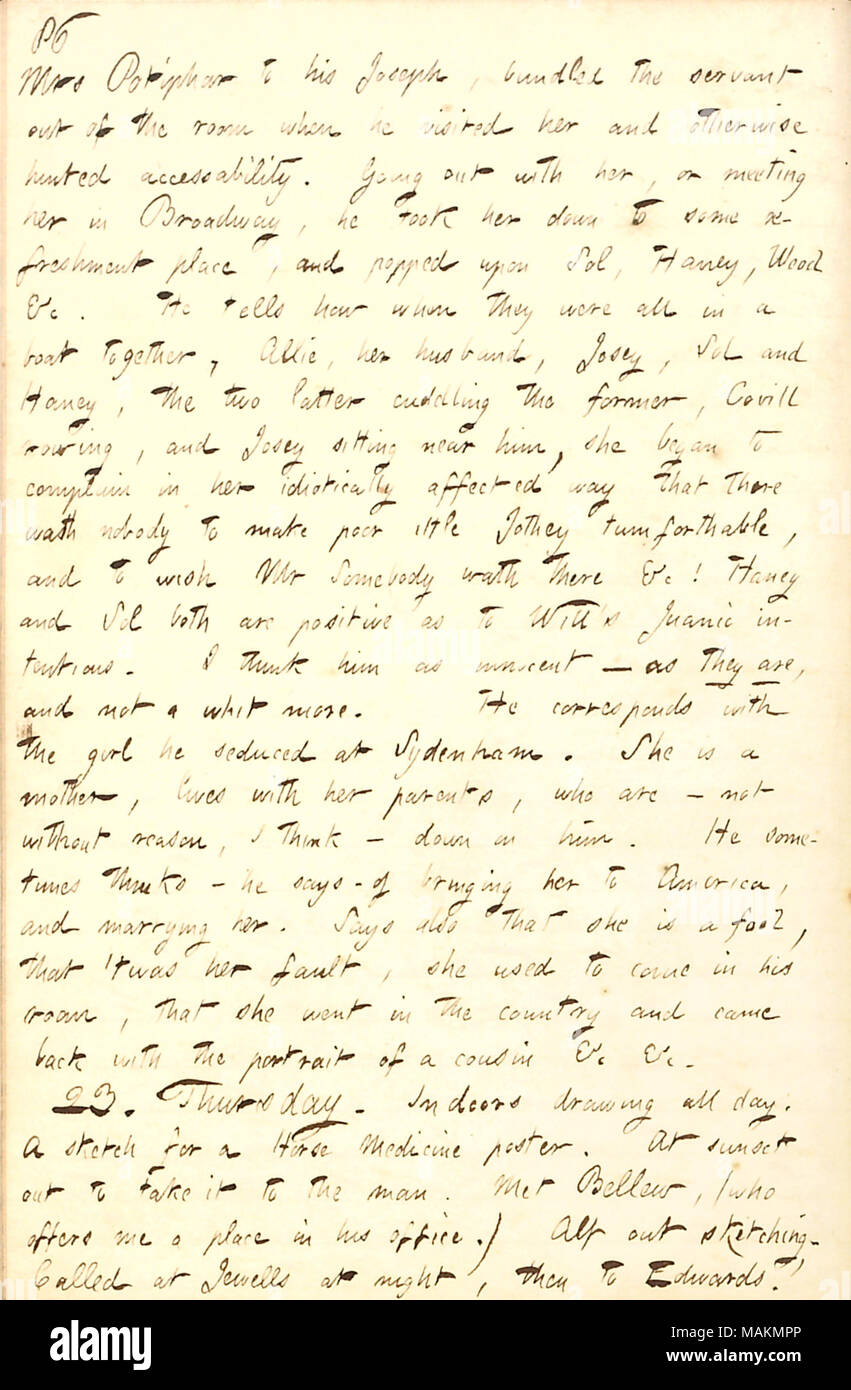 86
Mrs Potiphar to his Joseph, bundled the servant
out of the room when he visited her and otherwise
hinted accessability. Going out with her, or meeting
her in Broadway, he took her down to some re-
freshment place, and popped upon Sol, Haney, Wood
&c. He tells how when they were all in a
boat together, Allie, her husband, Josey, Sol and
Haney, the two latter cuddling the former, Covill
rowing, and Josey sitting near him, she began to
complain in her idiotically affected way that there
wath nobody to make poor ittle Jothey tumforthable,
and to wish Mr Somebody wath there &c! Haney
and Sol both are positive as to Will's Juanic in-
tentions. I think him as innocent — as they are,
and not a whit more. He corresponds with
the girl he seduced at Sydenham. She is a
mother, lives with her parents, who are — not
without reason, I think — down on him. He some-
times thinks — he says — of bringing her to America,
and marrying her. Says also that she is a fool,
that 'twas her fault, she used to come in his
room, that she went in the country and came
back with the portrait of a cousin &c &c.
23. Thursday. Indoors drawing all day.
A sketch for a Horse Medicine poster. At sunset
out to take it to the man. Met Bellew, (who
offers me a place in his office.) Alf out sketching.
Called at Jewells at night, then to Edwards'.
alamy
Image ID: MAKMPP
www.alamy.com